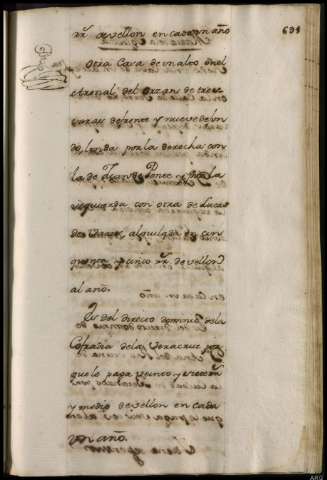 691
rx. de vellon en cada un año
Otra Casa de un alto en el
Arenal del Orzan de trece
varas de frente y nueve de fon
do, linda por la derecha con
la de Juan de Ponte y por la
izquierda con otra de Lucas
de alquilada en cin
quenta y cinco rx. de vellon
al año.
Es del directo dominio de la
Cofradia de la Veracruz por
que le paga veinte y siete rx.
y medio de vellon en cada
un año.